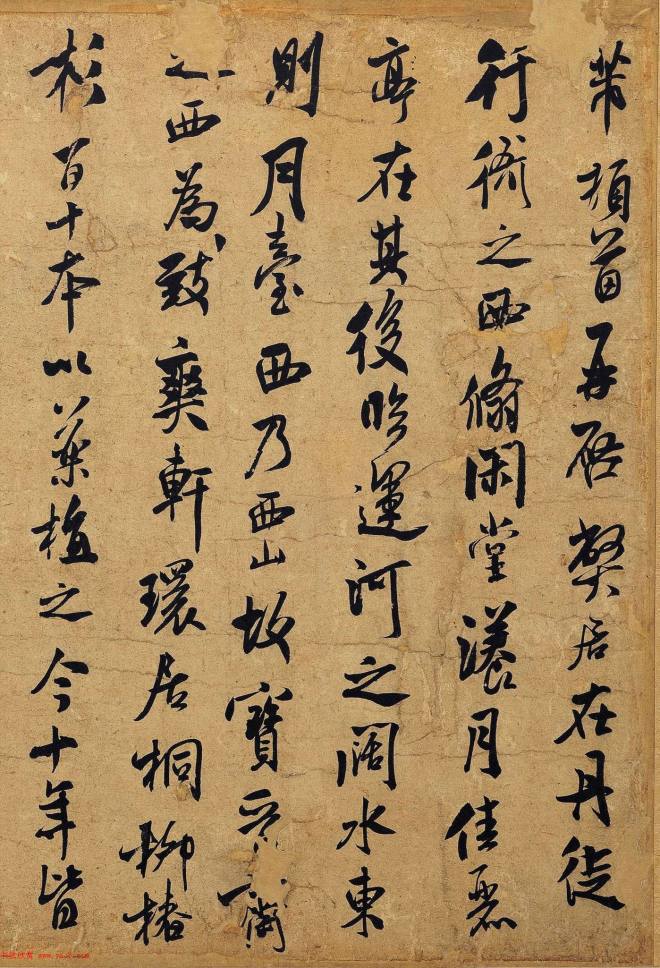 芾頓首再啓弊居在丹徒
行衙之西翛閑堂漾月佳麗
亭在其後臨運河之闊水東
則月臺西乃西山故寶晉齋
之西為致爽軒環居桐柳椿
杉百十本以植之今十年皆
书法欣赏 www.yac8.com